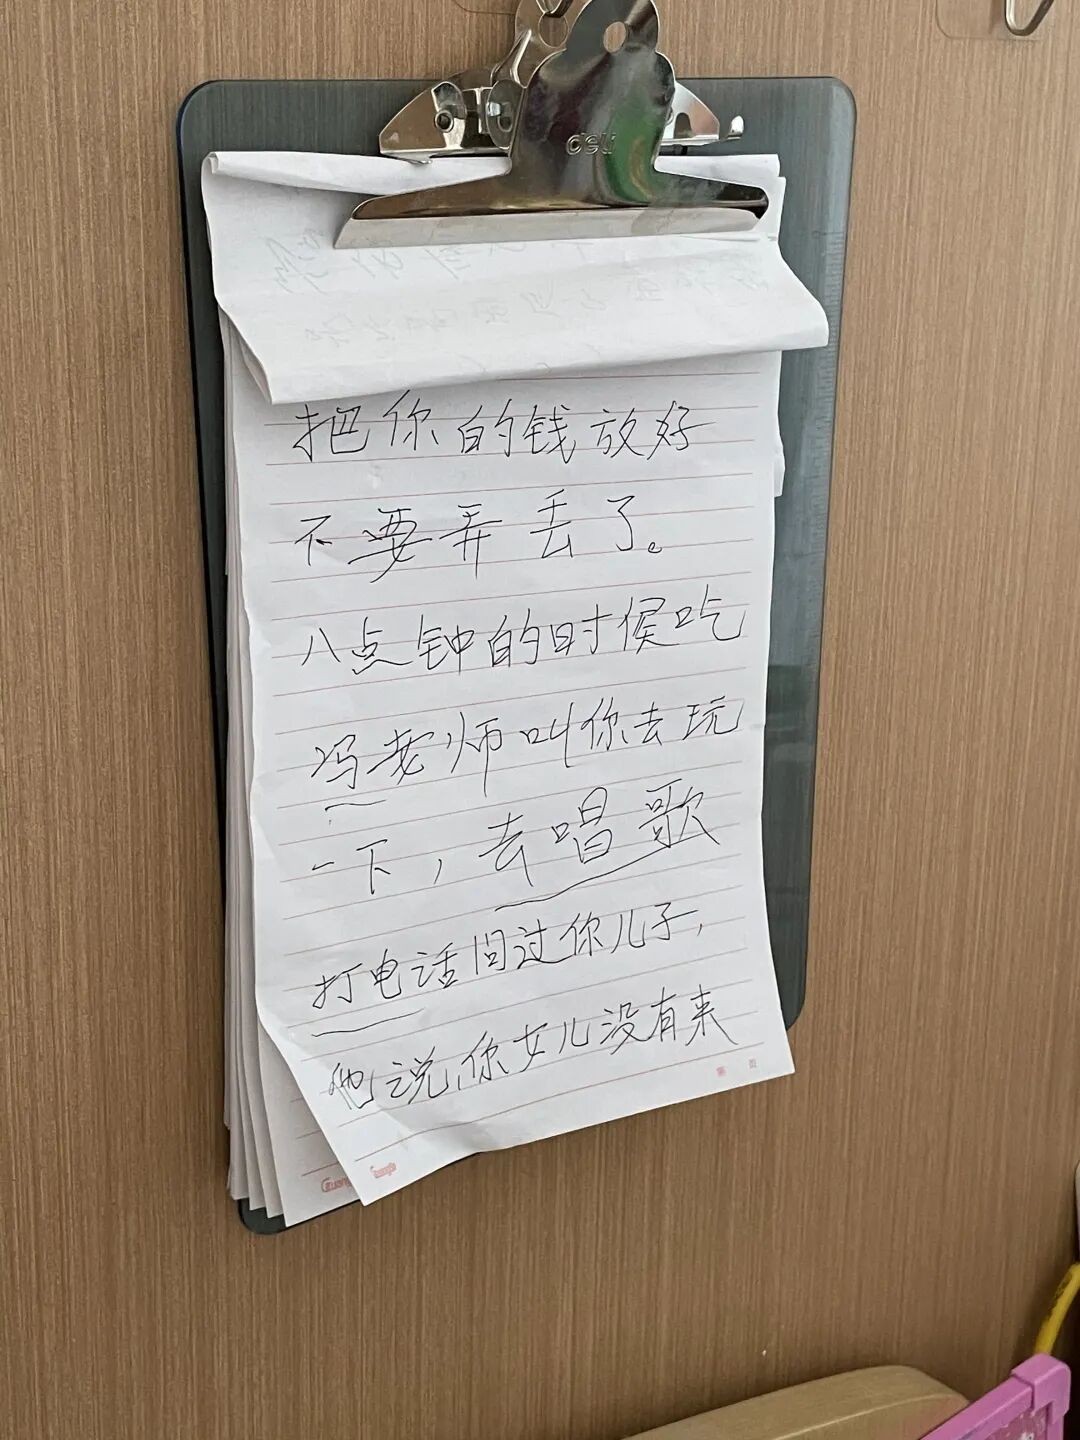 deli
把你的钱放好
不要弄丢了。
八点钟的时候吃
冯老师叫你去玩
一下，去唱歌
打电话问过你儿子，
他说，你女儿没有来